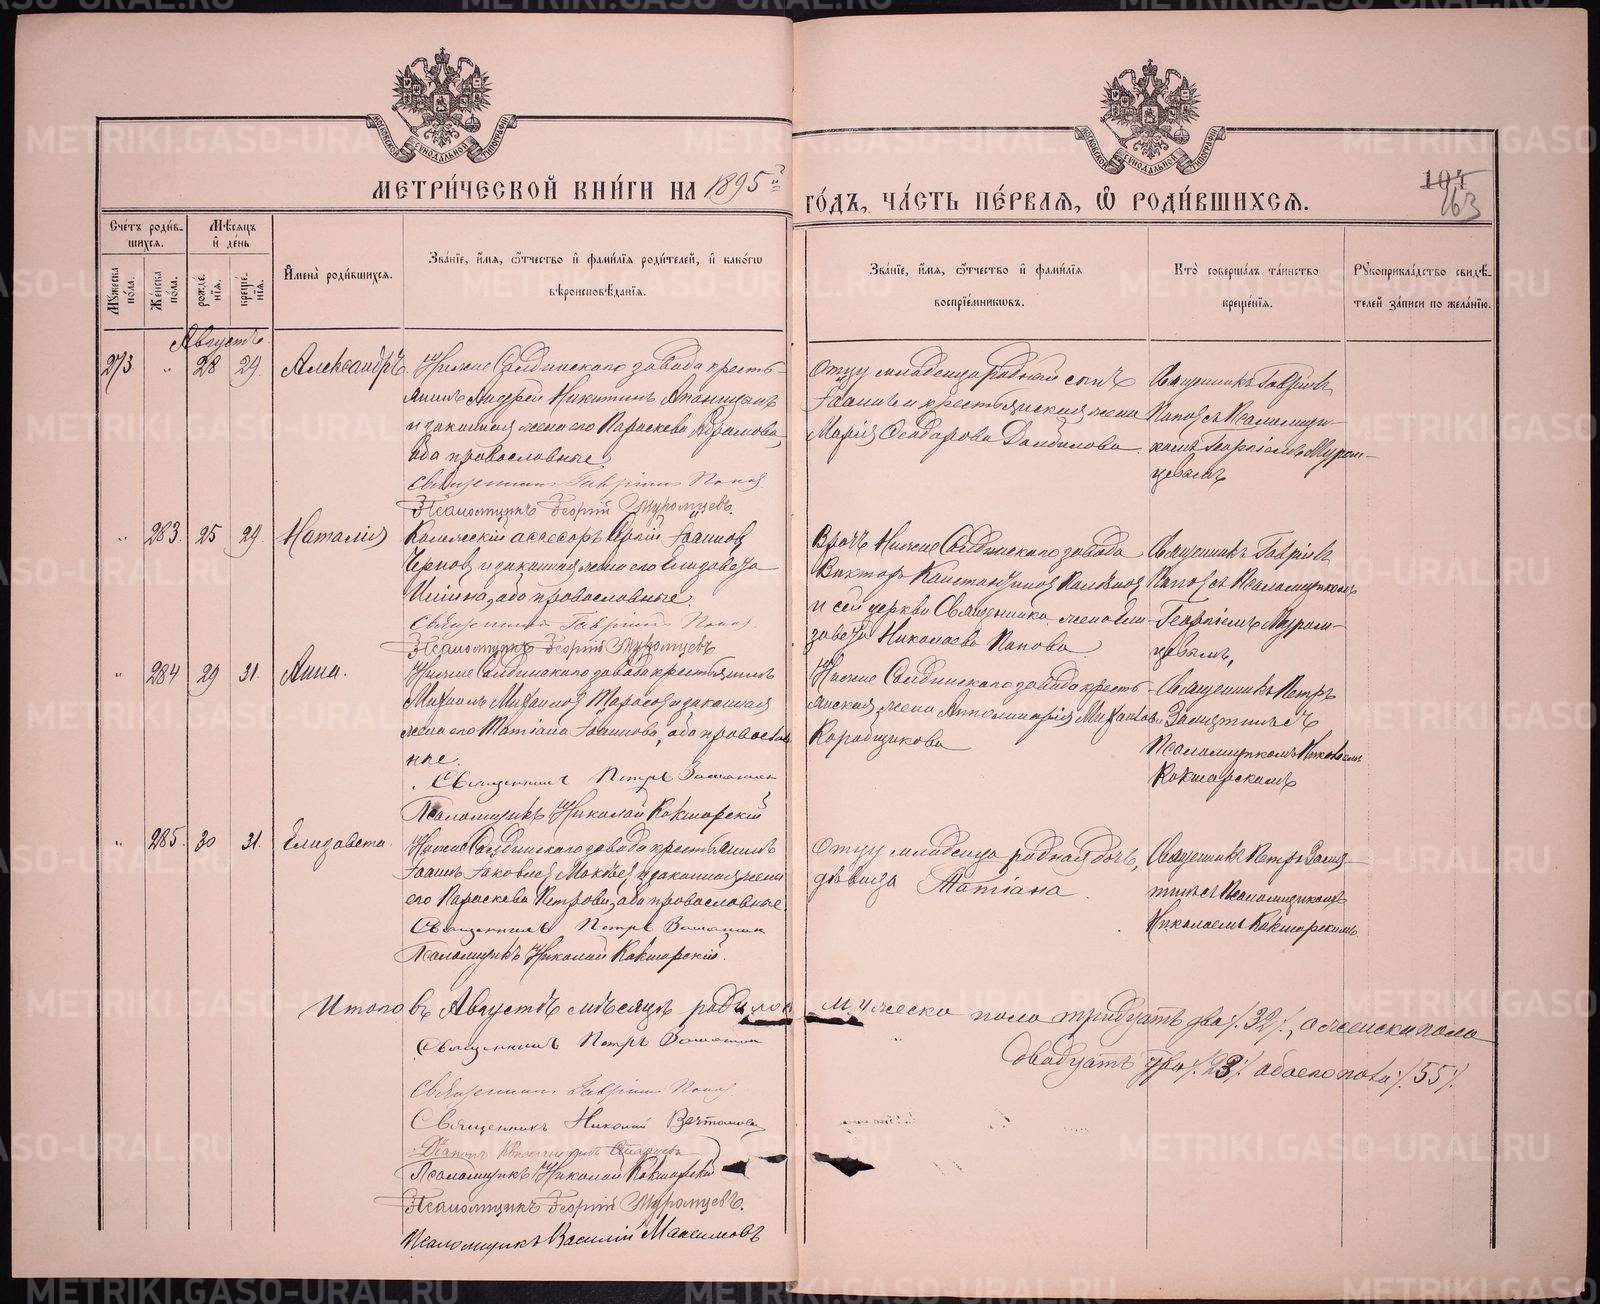 МЕТРИ́ЧЕСКОЙ КНИ́ГИ НА 1895 й
ГО́ДЪ, ЧА́СТЬ ПЕ́РВАЯ, Ѡ РОДИ́ВШИХСЯ.
104
163
Сче́тъ роди́в-
шихся.
Мѣ́сяцъ
и҆ де́нь
Мꙋ́жеска по́ла.
Же́нска по́ла.
рожде́нїя.
креще́нїя.
И҆мена̀ роди́вшихся.
Зва́нїе, и҆́мя, ѻ҆́тчество и҆ фами́лїя роди́телей, и҆ како́гѡ
вѣроисповѣ́данїя.
Зва́нїе, и҆́мя, ѻ҆́тчество и҆ фами́лїя
воспрїе́мникѡвъ.
Кто̀ соверша́лъ та́инство
креще́нїя.
Рꙋкоприкла́дство свидѣ́-
телей за́писи по жела́нїю.
Августъ
273 " 28 29 Александръ.
Нижне Салдинскаго завода кресть-
янинъ Андрей Никитинъ
и законная жена его Параскева Абрамова,
оба православные.
Священникъ Гавріилъ Поповъ
Псаломщикъ Георгій Муромцевъ.
Отцу младенца родный сынъ
Іоаннъ и крестьянская жена
Марія Феодорова Данилова.
Священникъ Гавріилъ
Поповъ съ Псаломщи-
комъ Георгіемъ Муром-
цевымъ
" 283. 25 29. Наталія
Колежскій ассесоръ Сергій Іоаннов
Чернов и законная жена его Елизавета
оба православные.
Священникъ Гавріилъ Поповъ
Псаломщикъ Георгій Муромцевъ
Врачъ Нижне Салдинскаго завода
Викторъ Константинов
и сей церкви Священника жена Ели-
завета Николаева Попова
Священникъ Гавріилъ
Поповъ съ Псаломщикомъ
Георгіемъ Муром-
цевымъ,
" 284 29 31. Анна.
Нижне Салдинскаго завода крестьянинъ
Михаилъ Михаилов Тарасов и законная
жена его Татіана Іоаннова, оба православ-
ные.
Священникъ Петръ
Псаломщикъ Николай Кокшарскій
Нижне Салдинскаго завода кресть-
янская жена Апполинарія Михаилова
Коробщикова
Священникъ Петръ
съ
Псаломщикомъ Николаемъ
Кокшарскимъ
" 285. 30 31. Елизавета.
Нижне Салдинскаго завода крестьянинъ
Іоаннъ Іаковлев и законная жена
его Параскева Петрова, оба православные.
Священникъ Петръ
Псаломщикъ Николай Кокшарскій.
Отцу младенца родная дочь,
дѣвица Татіана
Священникъ Петръ
съ Псаломщикомъ
Николаемъ Кокшарскимъ
Итого въ Августѣ мѣсяцѣ родилось мужеска пола тридцать два /. 32 /., а женска пола
двадцать три /. 23 /. обоего пола /. 55 /.
Священникъ Петръ
Священникъ Гавріилъ Поповъ
Священникъ Николай
Псаломщикъ Николай Кокшарскій
Псаломщикъ Георгій Муромцевъ.
Псаломщикъ Василій Максимовъ
METRIKI.GASO-URAL.RU